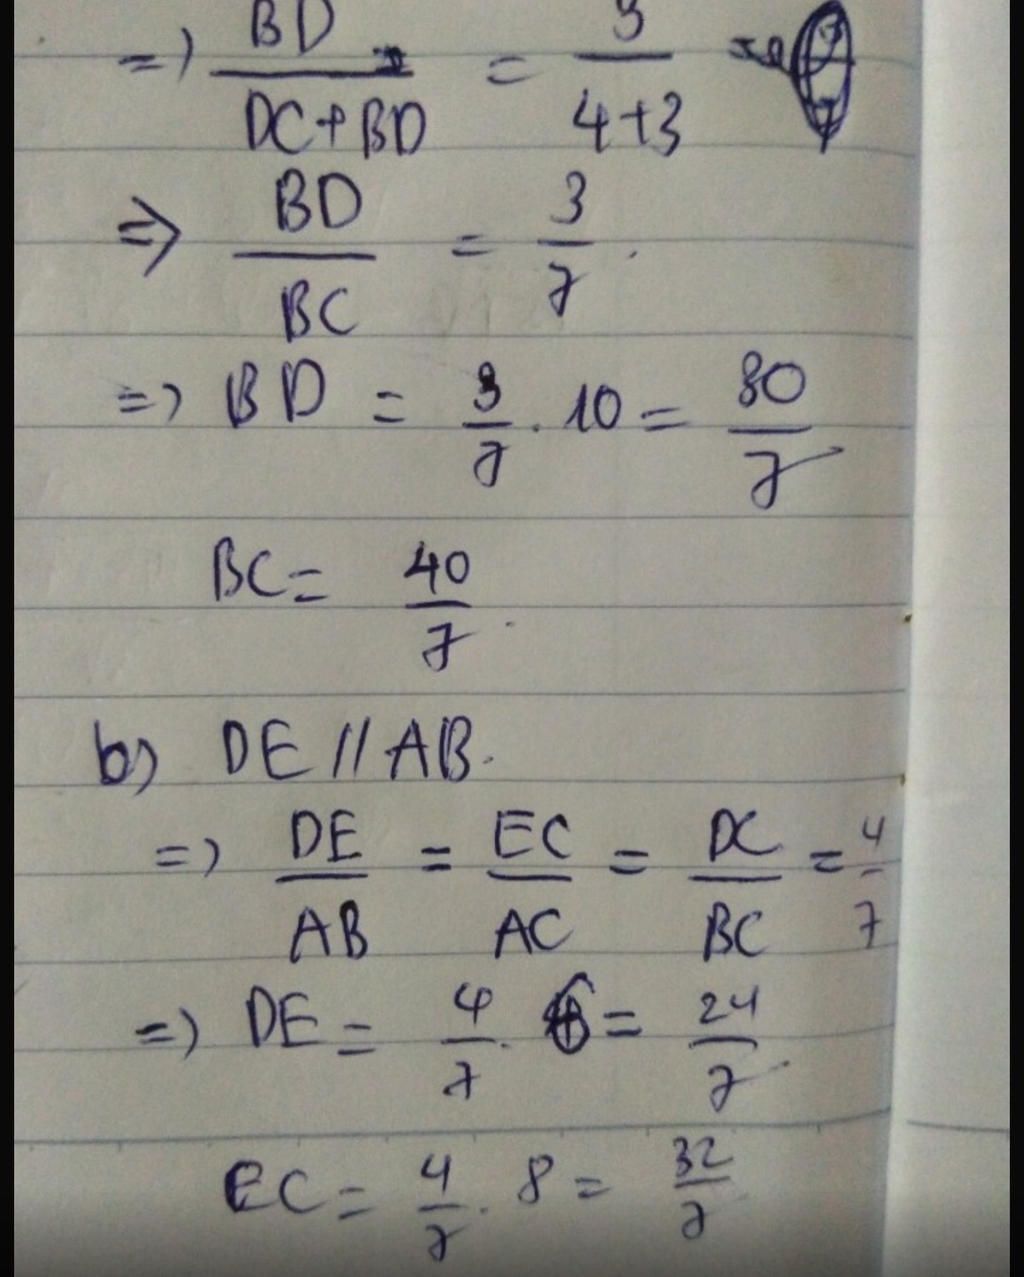 => BD / DC+BD = 3 / 4+3
=> BD / BC = 3 / 7
=> BD = 3/7 . 10 = 30/7
BC = 40/7
b) DE // AB.
=> DE/AB = EC/AC = DC/BC = 4/7
=> DE = 4/7 . 6 = 24/7
EC = 4/7 . 8 = 32/7